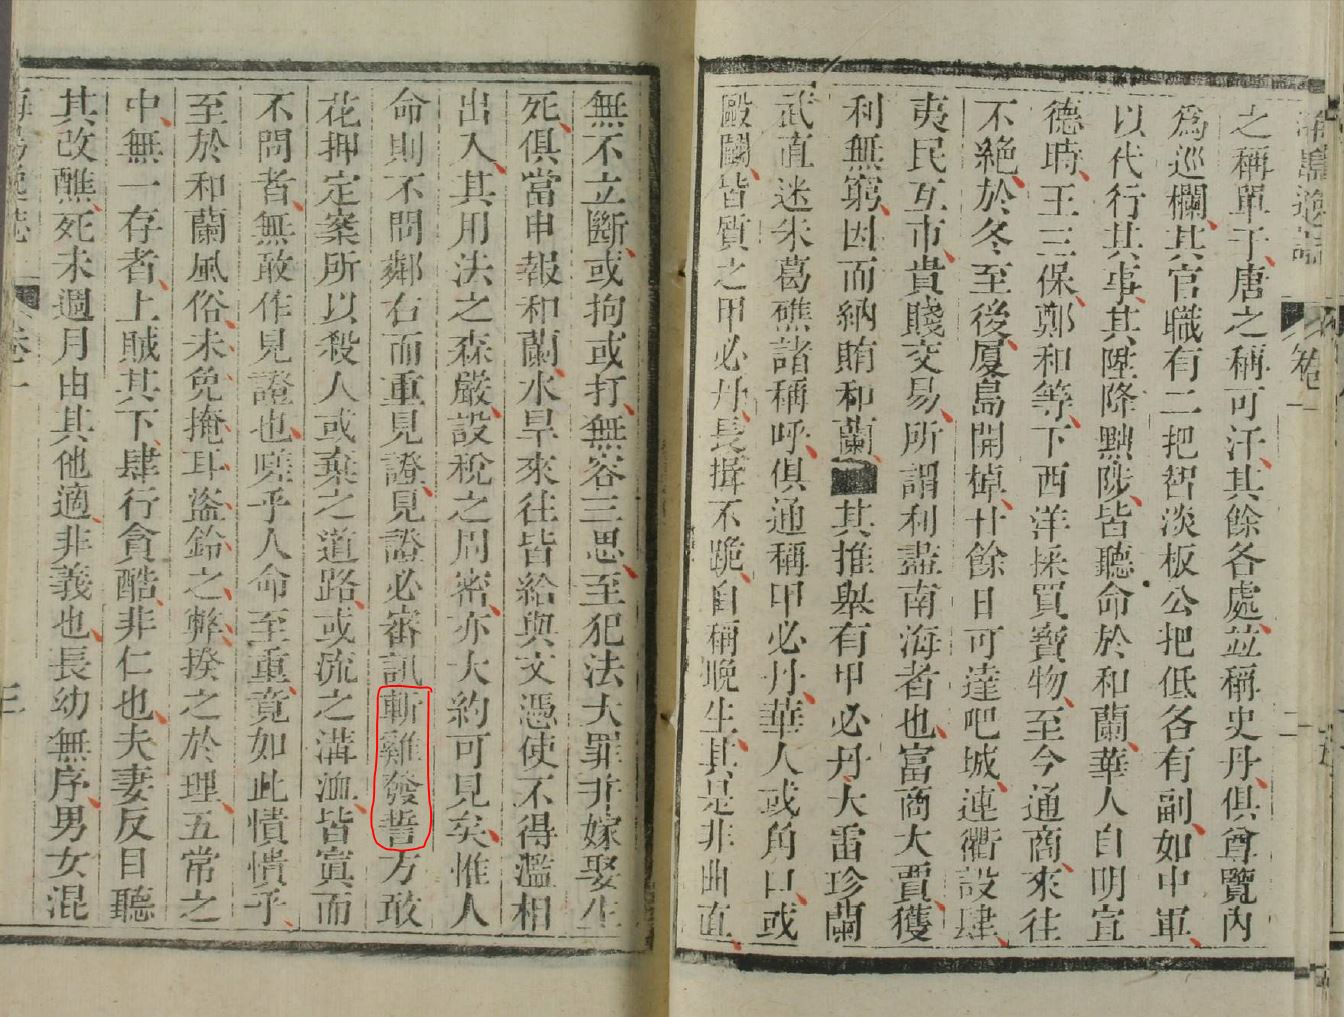 海島逸誌
卷一
二
之稱單于唐之稱可汗其餘各處並稱史丹俱尊覽內
爲巡欄其官職有二把智淡板公把低各有副如中軍
以代行其事其陞降黜陟皆聽命於和蘭華人自明宣
德時王三保鄭和等下西洋採買寶物至今通商來往
不絕於冬至後厦島開棹廿餘日可達吧城連衢設肆
夷民互市貴賤交易所謂利盡南海者也富商大賈獲
利無窮因而納賄和蘭
其推舉有甲必丹大雷珍蘭
武直迷朱葛礁諸稱呼俱通稱甲必丹華人或角口或
毆鬬皆質之甲必丹長揖不跪自稱晚生其是非曲直
無不立斷或拘或打無容三思至犯法大罪并嫁娶生
死俱當申報和蘭水旱來往皆給與文憑使不得濫相
出入其用法之森嚴設稅之周密亦大約可見矣惟人
命則不問鄰右而重見證見證必審訊斬雞發誓方敢
花押定案所以殺人或棄之道路或流之溝洫皆寘而
不問者無敢作見證也嗟乎人命至重竟如此憒憒乎
至於和蘭風俗未免掩耳盜鈴之弊揆之於理五常之
中無一存者上賊其下肆行貪酷非仁也夫妻反目聽
其改醮死未週月由其他適非義也長幼無序男女混
海島逸誌
卷一
三